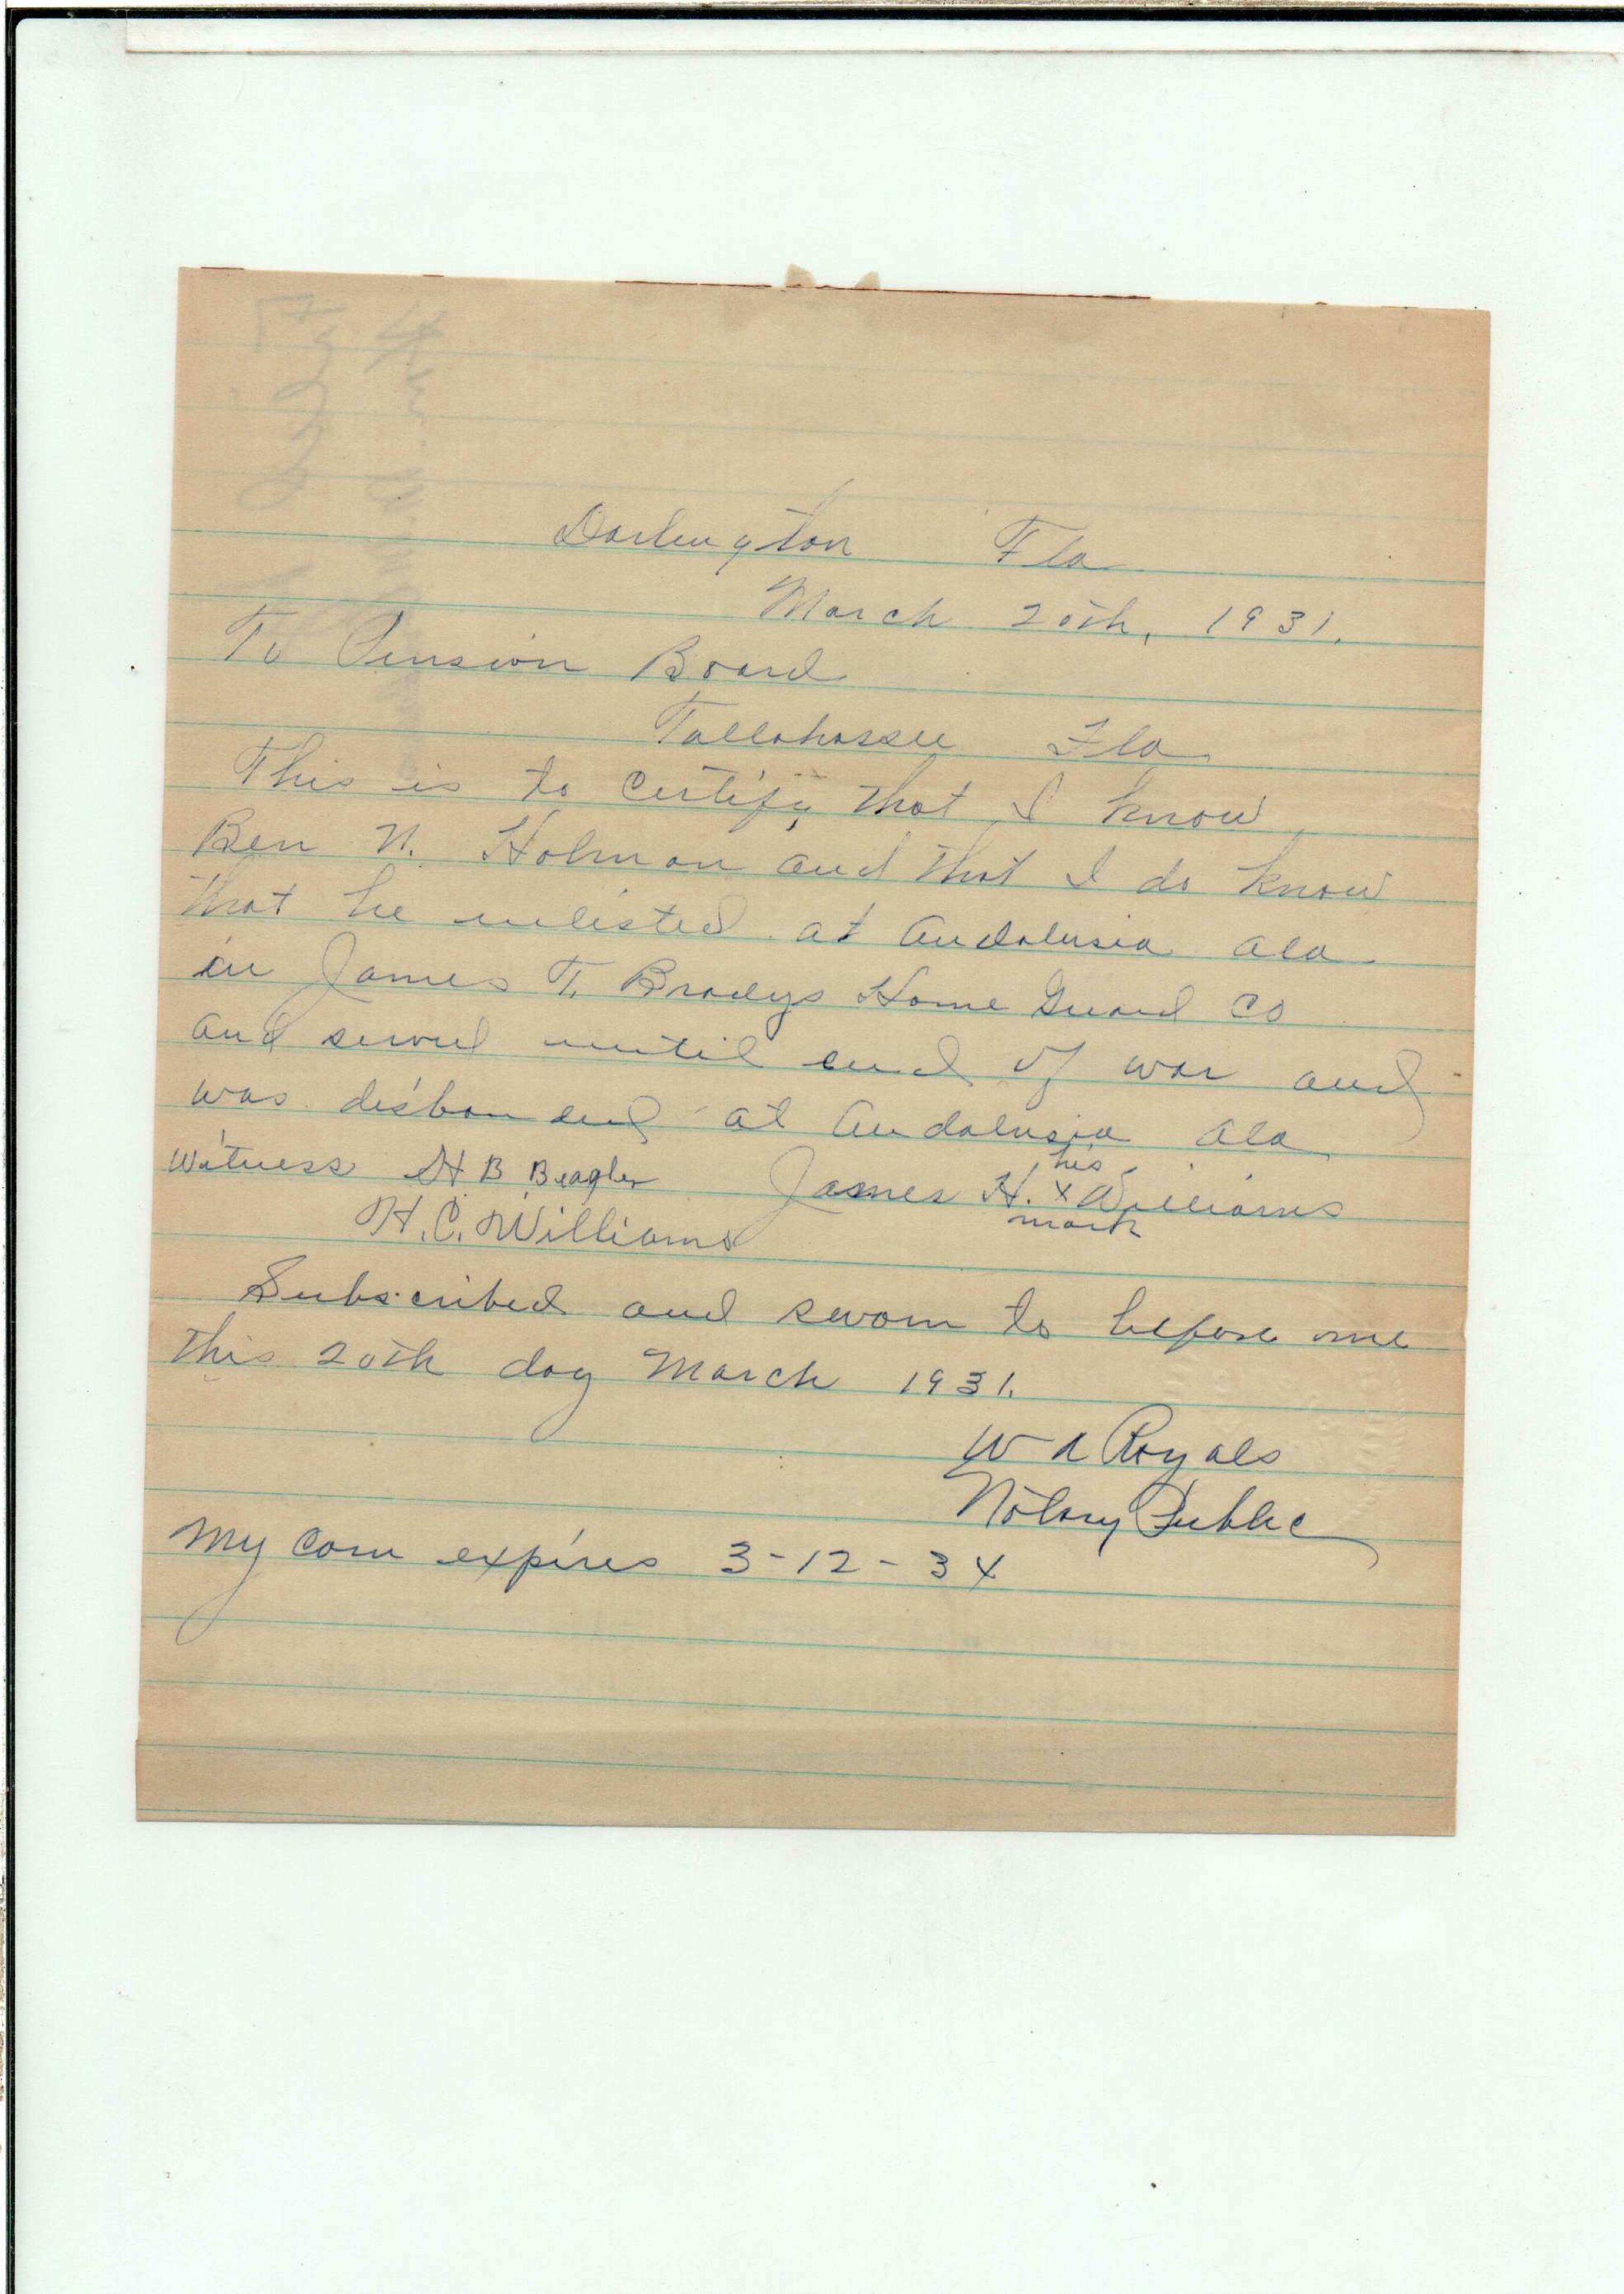 Darlington Fla
March 20th, 1931.
To Pension Board
Tallahassee Fla
This is to certify that I know
Ben N. Holman and that I do know
that he enlisted at Andalusia Ala
in James T. Bradys Home Guard Co
and served until end of war and
was disbanded at Andalusia Ala
Witness H B Beagler James H. his x mark Williams
H. C. Williams
Subscribed and sworn to before me
this 20th day March 1931.
W A Royals
Notary Public
My com expires 3-12-34